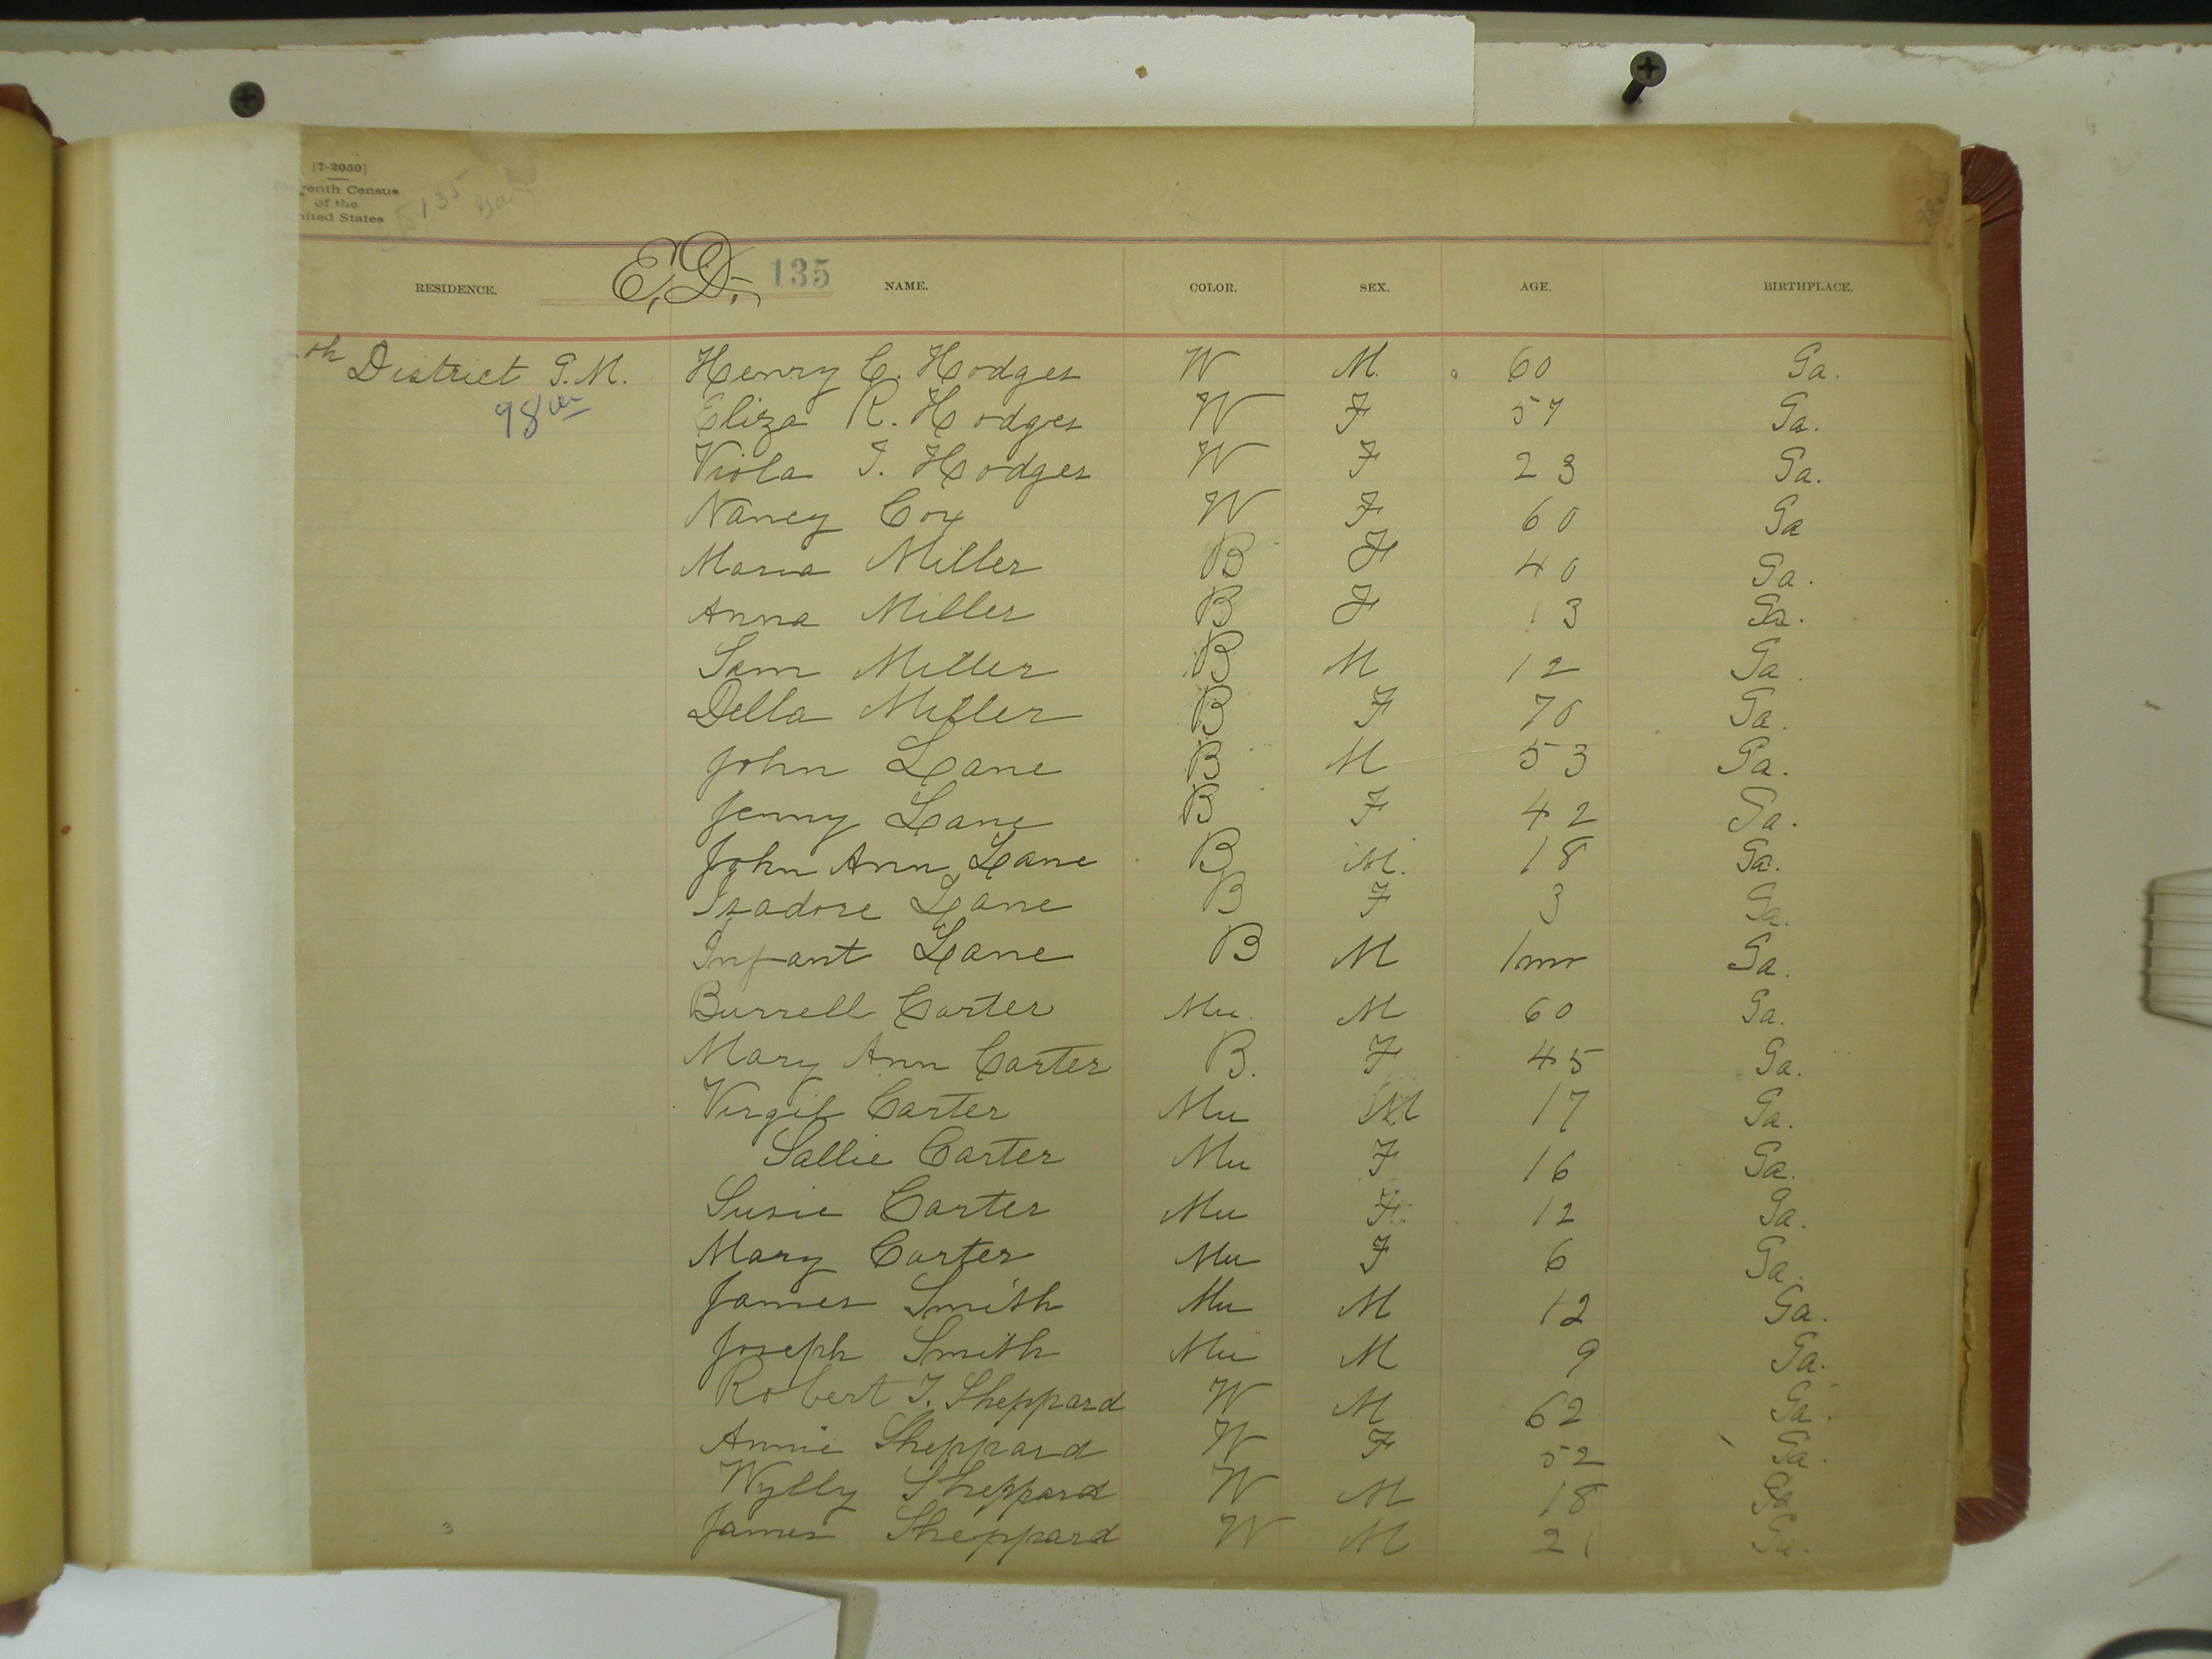 [7-2050]
enth Census
of the
nited States
135
E.D. 135
RESIDENCE. NAME. COLOR. SEX. AGE. BIRTHPLACE.
th District G.M. Henry C. Hodges W M. 60 Ga.
98 Eliza R. Hodges W F 57 Ga.
Viola I. Hodges W F 23 Ga.
Nancy Cox W F 60 Ga
Maria Miller B F 40 Ga.
Anna Miller B F 13 Ga.
Sam Miller B M 12 Ga.
Della Miller B F 70 Ga.
John Lane B M 53 Ga.
Jenny Lane B F 42 Ga.
John Ann Lane B M. 18 Ga.
Izadore Lane B F 3 Ga.
Infant Lane B M 1m Ga.
Burrell Carter Mu. M 60 Ga.
Mary Ann Carter B. F 45 Ga.
Virgil Carter Mu M 17 Ga.
Sallie Carter Mu F 16 Ga.
Susie Carter Mu F. 12 Ga.
Mary Carter Mu F 6 Ga.
James Smith Mu M 12 Ga.
Joseph Smith Mu M 9 Ga.
Robert T. Sheppard W M 62 Ga.
Annie Sheppard W F 52 Ga.
Wylly Sheppard W M 18 Ga
James Sheppard W M 21 Ga.
3